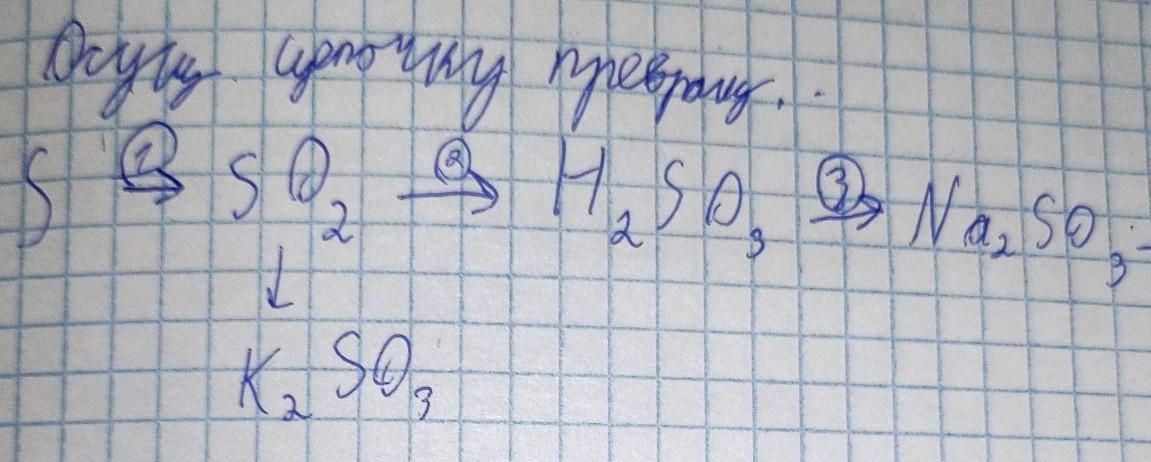 Осущ. цепочку превращ. ..
S ①→ SO₂ ②→ H₂SO₃ ③→ Na₂SO₃-
↓
K₂SO₃